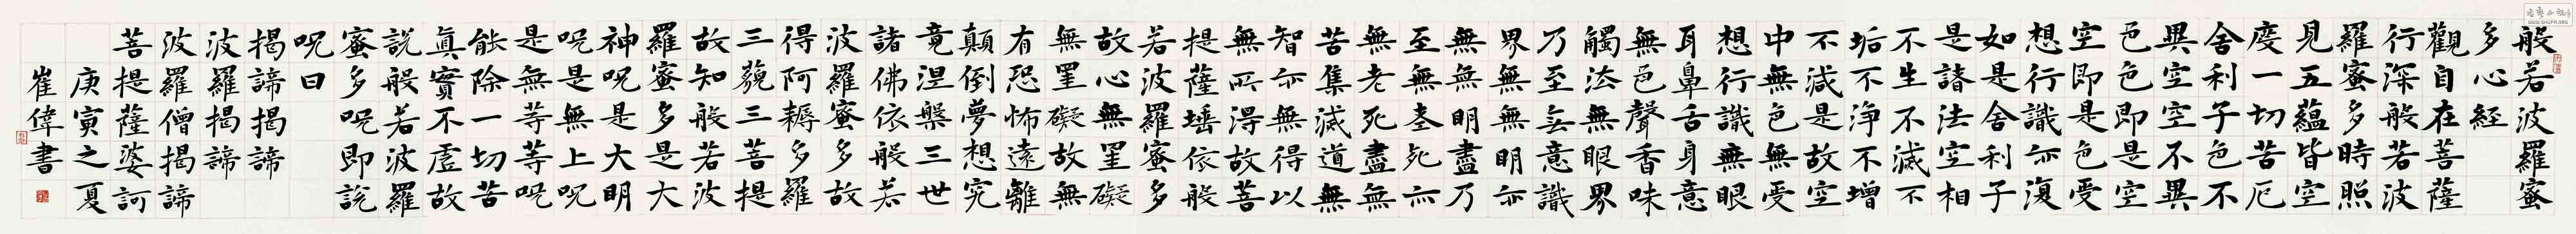 般若波羅蜜
多心経
觀自在菩薩
行深般若波
羅蜜多時照
見五蘊皆空
度一切苦厄
舍利子色不
異空空不異
色色即是空
空即是色受
想行識亦復
如是舍利子
是諸法空相
不生不滅不
垢不淨不增
不減是故空
中無色無受
想行識無眼
耳鼻舌身意
無色聲香味
觸法無眼界
乃至無意識
界無無明亦
無無明盡乃
至無老死亦
無老死盡無
苦集滅道無
智亦無得以
無所得故菩
提薩埵依般
若波羅蜜多
故心無罣礙
無罣礙故無
有恐怖遠離
顛倒夢想究
竟涅槃三世
諸佛依般若
波羅蜜多故
得阿耨多羅
三藐三菩提
故知般若波
羅蜜多是大
神呪是大明
呪是無上呪
是無等等呪
能除一切苦
真實不虛故
說般若波羅
蜜多呪即說
呪曰
揭諦揭諦
波羅揭諦
波羅僧揭諦
菩提薩婆訶
庚寅之夏
崔偉書